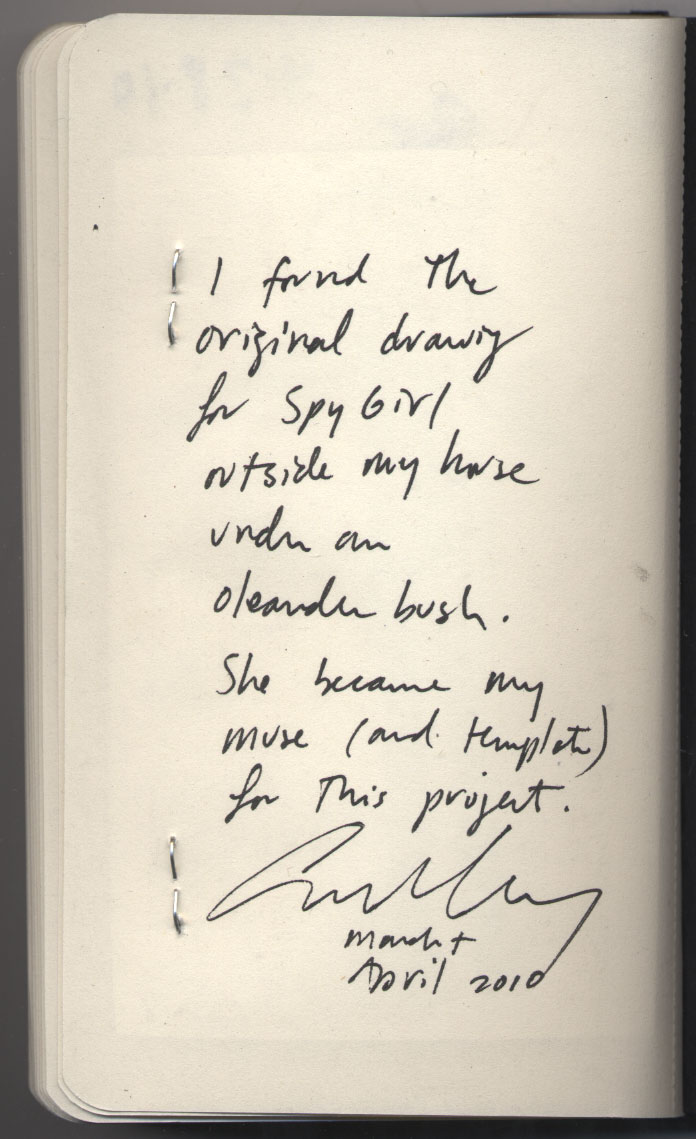 I found the
original drawing
for Spy Girl
outside my house
under an
oleander bush.
She became my
muse (and template)
for this project.
March +
April 2010